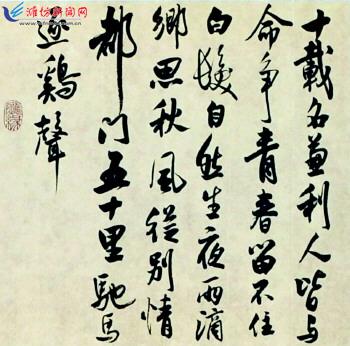 潍坊新闻网
十載名兼利人皆与
命争青春留不住
白髮自然生夜雨滴
鄉思秋風從別情
都門五十里馳馬
逐鷄聲